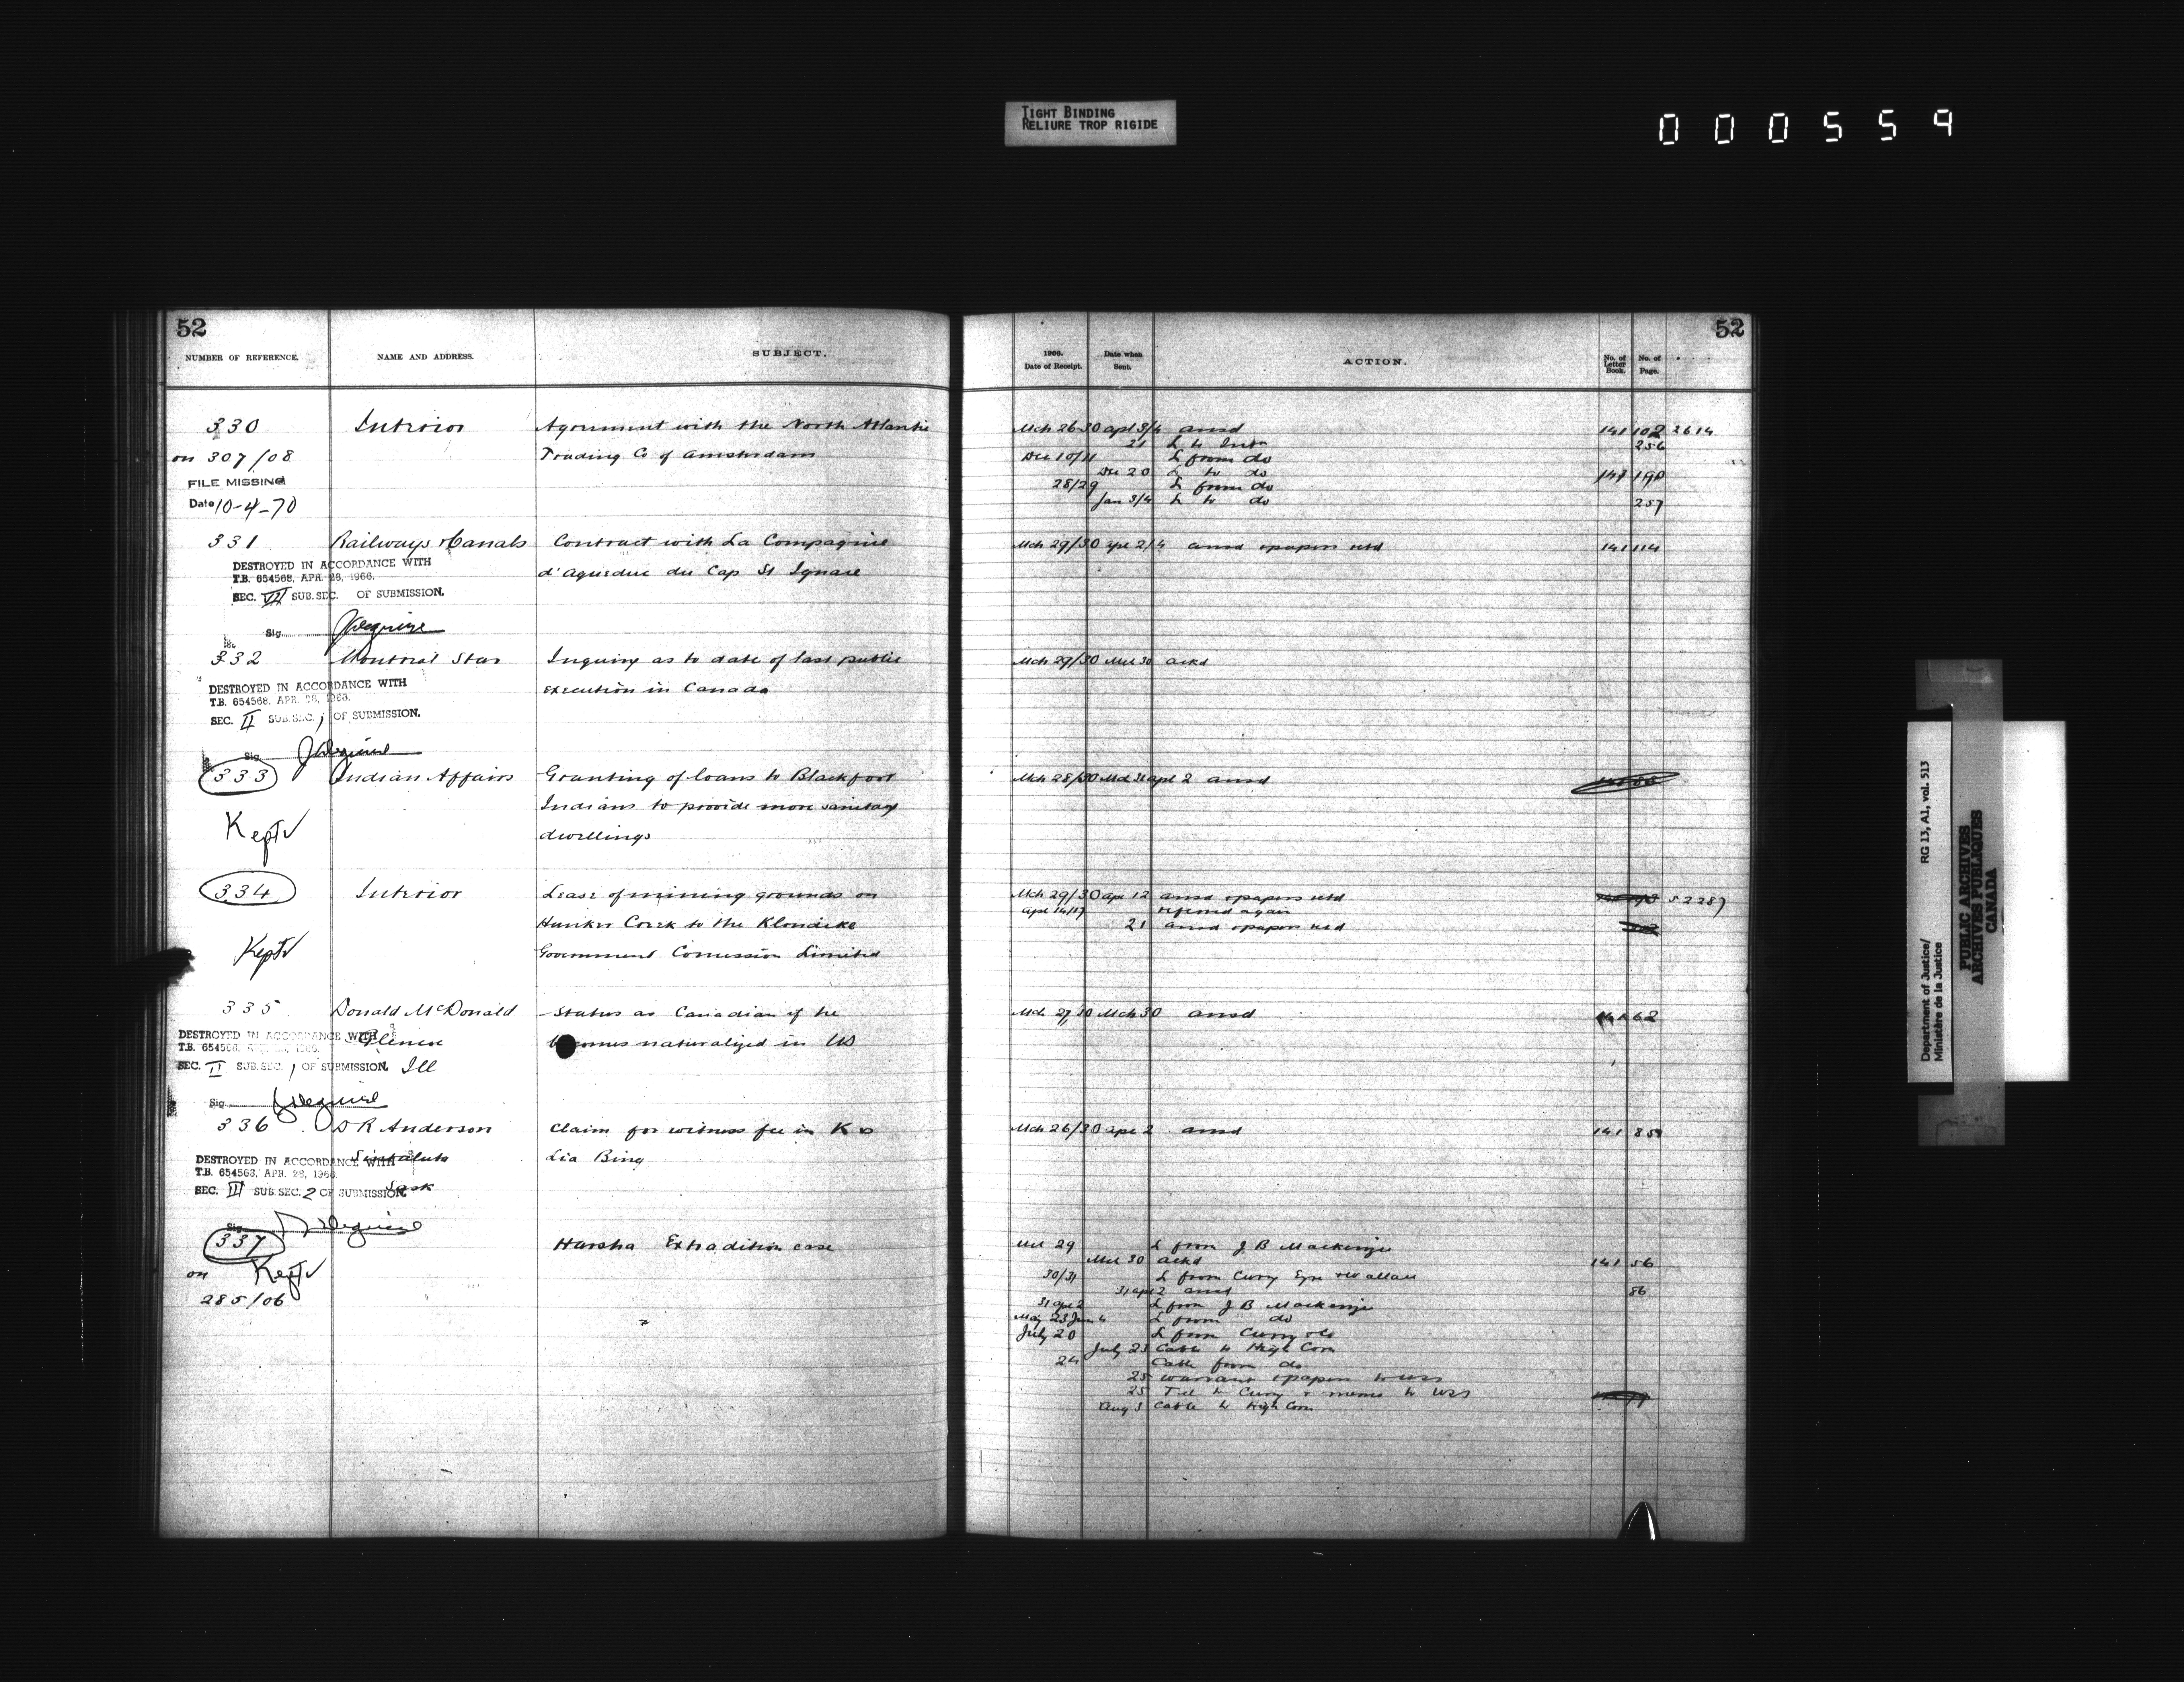 TIGHT BINDING
RELIURE TROP RIGIDE
000559
52
NUMBER OF REFERENCE.
NAME AND ADDRESS.
SUBJECT.
330 Interior Agreement with the North Atlantic
on 307/08 Trading Co of Amsterdam
FILE MISSING
Date 10-4-70
331 Railways & Canals Contract with La Compagnie
DESTROYED IN ACCORDANCE WITH
T.B. 654568, APR. 28, 1966.
d'Aqueduc du Cap St Ignace
SEC. VII SUB.SEC. OF SUBMISSION.
Sig.
332 Montreal Star Inquiry as to date of last public
DESTROYED IN ACCORDANCE WITH
T.B. 654568, APR. 28, 1966.
execution in Canada
SEC. II SUB.SEC. 1 OF SUBMISSION.
Sig.
333 Indian Affairs Granting of loans to Blackfoot
Indians to provide more sanitary
Kept
dwellings
334 Interior Lease of mining grounds on
Hunker Creek to the Klondike
Kept
Government Concession Limited
335 Donald McDonald Status as Canadian if he
DESTROYED IN ACCORDANCE WITH
T.B. 654568, APR. 28, 1966.
Glencoe
becomes naturalized in US
SEC. II SUB.SEC. 1 OF SUBMISSION.
Ill
Sig.
336 D R Anderson Claim for witness fee in K v
Sintaluta Lia Bing
DESTROYED IN ACCORDANCE WITH
T.B. 654568, APR. 28, 1966.
SEC. III SUB.SEC. 2 OF SUBMISSION.
Sask
Sig.
337 Harsha Extradition case
on Kept
285/06
52
1906.
Date of Receipt.
Date when
Sent.
ACTION.
No. of
Letter
Book.
No. of
Page.
Mch 26 30 Apl 3/4 ansd 141 102 2614
21 L to Intr 256
Dec 10/11 L from do
Dec 20 L to do 147 190
28/29 L from do
Jan 3/4 L to do 257
Mch 29/30 Apl 2/4 ansd & papers retd 141 114
Mch 29/30 Mch 30 ackd
Mch 28/30 Mch 31 Apl 2 ansd
Mch 29/30 Apl 12 ansd & papers retd 52287
Apl 14/17 referred again
21 ansd & papers retd
Mch 27/30 Mch 30 ansd 62
Mch 26/30 Apl 2 ansd 141 85
Mch 29 L from J B Mackenzie
Mch 30 ackd 141 56
30/31 L from Curry Eyre & Wallace
31 Apl 2 ansd 86
31 Apl 2 L from J B Mackenzie
May 23 Jun 4 L from do
July 20 L from Curry & Co
July 23 Cable to High Com
24 Cable from do
25 Warrant & papers to USS
25 Tel to Curry & memo to USS
Aug 3 Cable to High Com
Department of Justice/
Ministère de la Justice
RG 13, A1, vol. 513
PUBLIC ARCHIVES
ARCHIVES PUBLIQUES
CANADA